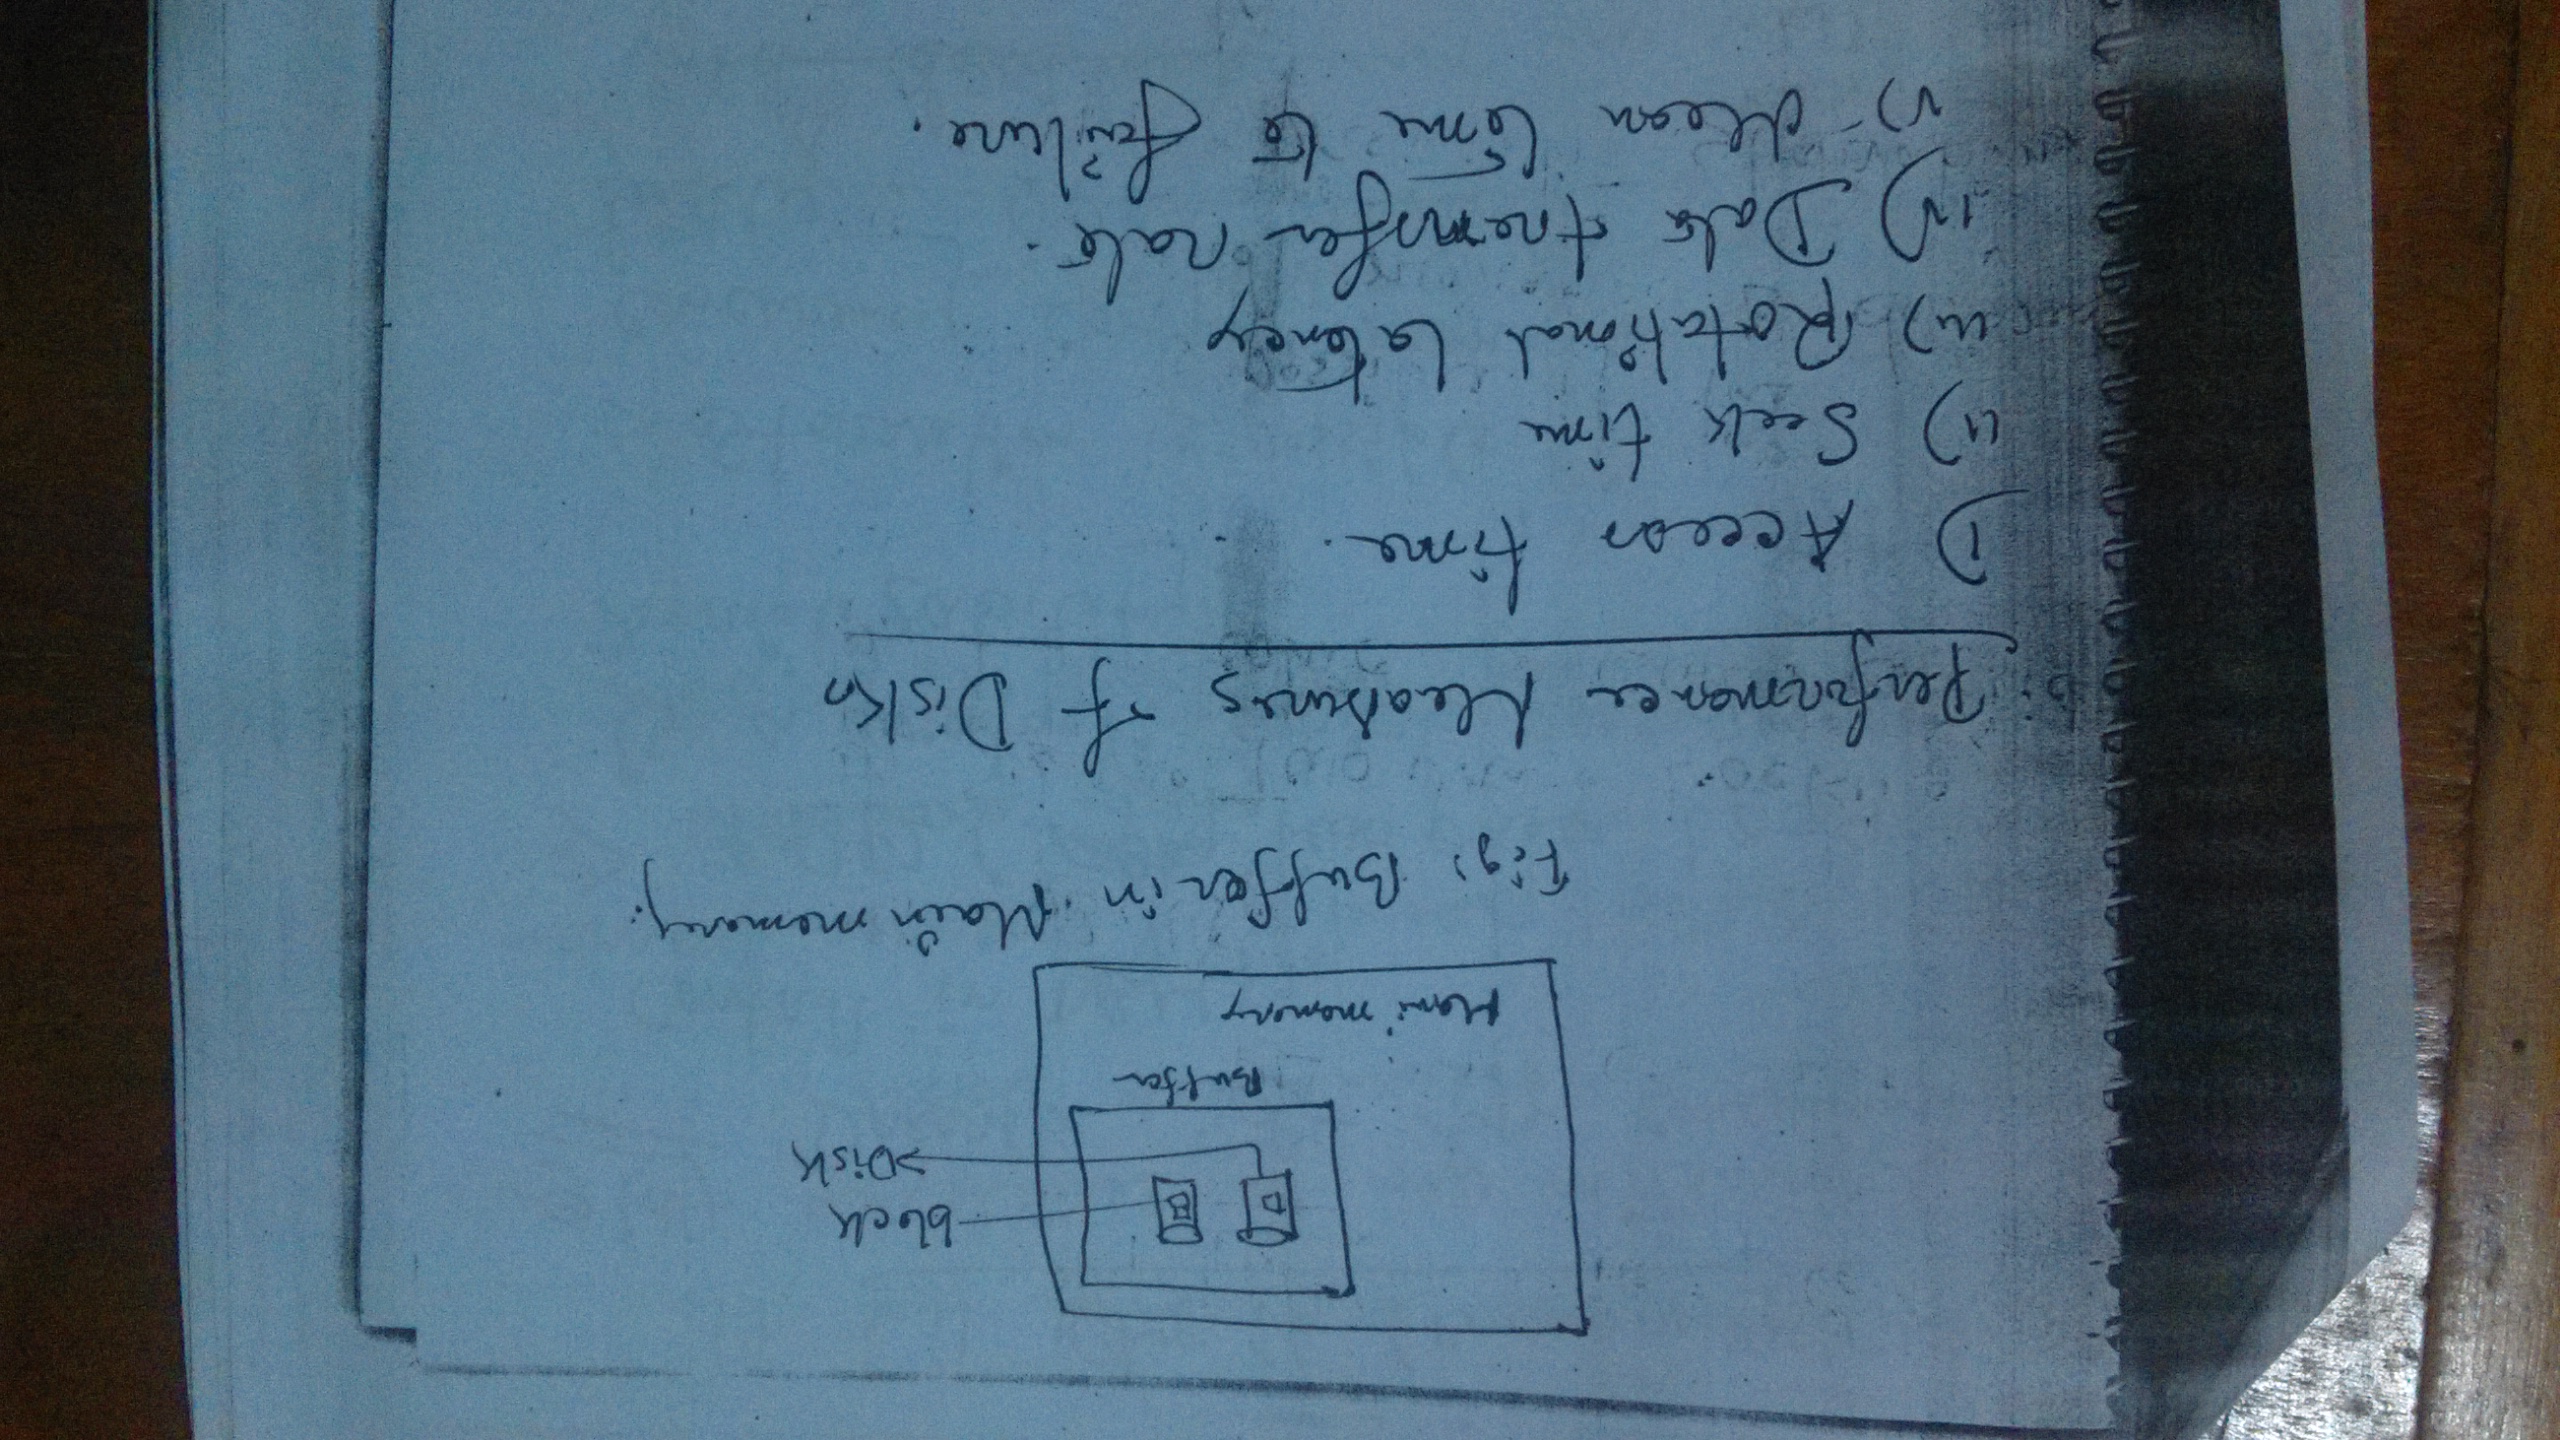 block
Disk
Buffer
Main memory
Fig: Buffer in Main memory.
Performance Measures of Disks
i) Access time.
ii) Seek time
iii) Rotational latency
iv) Data transfer rate.
v) Mean time to failure.